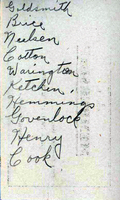 Goldsmith
Brice
Neilsen
Cotton
Waringteen
Ketchen,
Hemmings
Govenlock
Henry
Cook